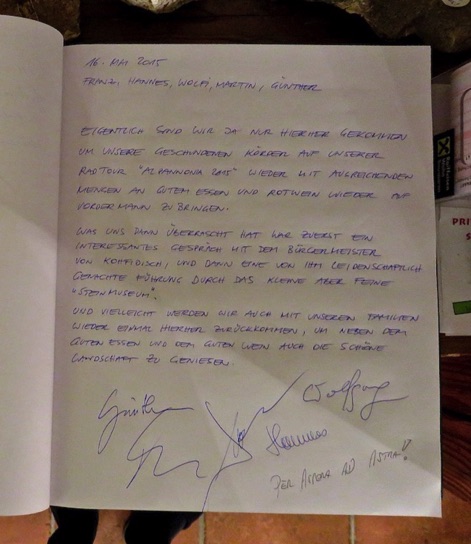 16. MAI 2015
FRANZ, HANNES, WOLFI, MARTIN, GÜNTHER
EIGENTLICH SIND WIR JA NUR HIERHER GEKOMMEN
UM UNSERE GESCHUNDENEN KÖRPER AUF UNSERER
RADTOUR WIEDER MIT AUSREICHENDEN
MENGEN AN GUTEM ESSEN UND ROTWEIN WIEDER AUF
VORDERMANN ZU BRINGEN.
WAS UNS DANN ÜBERRASCHT HAT WAR ZUERST EIN
INTERESSANTES GESPRÄCH MIT DEM BÜRGERMEISTER
VON KOHFIDISCH, UND DANN EINE VON IHM LEIDENSCHAFTLICH
GEMACHTE FÜHRUNG DURCH DAS KLEINE ABER FEINE
"STEINMUSEUM".
UND VIELLEICHT WERDEN WIR AUCH MIT UNSEREN FAMILIEN
WIEDER EINMAL HIERHER ZURÜCKKOMMEN, UM NEBEN DEM
GUTEN ESSEN UND DEM GUTEN WEIN AUCH DIE SCHÖNE
LANDSCHAFT ZU GENIESEN.
Günther
Wolfgang
Hannes
PER ASPERA AD ASTRA!
PRI